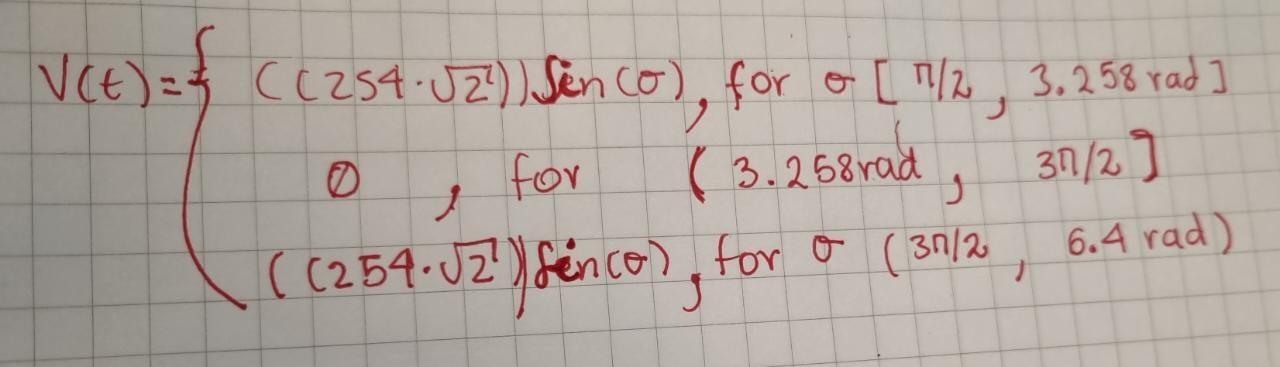 V(t)={ ((254·√2))Sen(σ), for σ [π/2, 3.258 rad]
0, for (3.258rad, 3π/2]
((254·√2))Sen(σ), for σ (3π/2, 6.4 rad)